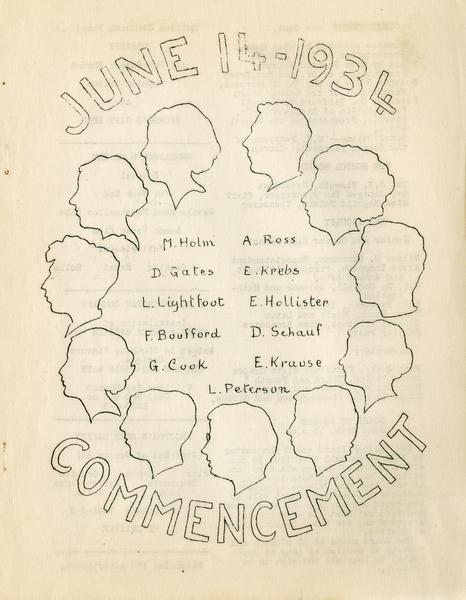 JUNE 14-1934
M. Holm A. Ross
D. Gates E. Krebs
L. Lightfoot E. Hollister
F. Boufford D. Schauf
G. Cook E. Krause
L. Peterson
COMMENCEMENT